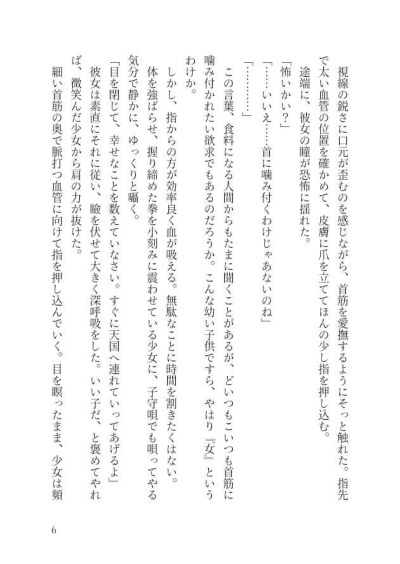 視線の鋭さに口元が歪むのを感じながら、首筋を愛撫するようにそっと触れた。指先
で太い血管の位置を確かめて、皮膚に爪を立ててほんの少し指を押し込む。
途端に、彼女の瞳が恐怖に揺れた。
「怖いかい？」
「……いいえ……首に噛み付くわけじゃあないのね」
「…………」
この言葉、食料になる人間からもたまに聞くことがあるが、どいつもこいつも首筋に
噛み付かれたい欲求でもあるのだろうか。こんな幼い子供ですら、やはり『女』という
わけか。
しかし、指からの方が効率良く血が吸える。無駄なことに時間を割きたくはない。
体を強ばらせ、握り締めた拳を小刻みに震わせている少女に、子守唄でも唄ってやる
気分で静かに、ゆっくりと囁く。
「目を閉じて、幸せなことを数えていなさい。すぐに天国へ連れていってあげるよ」
彼女は素直にそれに従い、瞼を伏せて大きく深呼吸をした。いい子だ、と褒めてやれ
ば、微笑んだ少女から肩の力が抜けた。
細い首筋の奥で脈打つ血管に向けて指を押し込んでいく。目を瞑ったまま、少女は頬
6